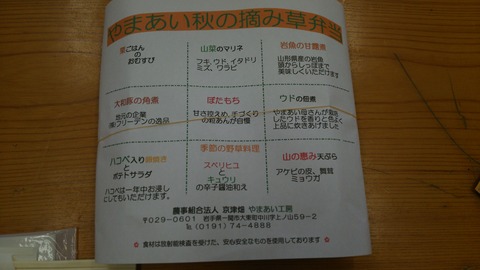 やまあい秋の摘み草弁当
栗ごはん
の
おむすび
山菜のマリネ
フキ、ウド、イタドリ
ミズ、ワラビ
岩魚の甘露煮
山形県産の岩魚
頭からしっぽまで
美味しくいただけます
大和豚の角煮
地元の企業
㈱フリーデンの逸品
ぼたもち
甘さ控えめ、手づくり
の粒あんが自慢
ウドの佃煮
やまあい母さんが栽培
したウドを香りと色よく
上品に炊きあげました
ハコベ入り卵焼き
と
ポテトサラダ
ハコベは一年中お浸し
にしてもいただけます。
季節の野草料理
スベリヒユ
と
キュウリ
の辛子醤油和え
山の恵み天ぷら
アケビの皮、舞茸
ミョウガ
農事組合法人 京津畑 やまあい工房
〒029-0601 岩手県一関市大東町中川字上ノ山59-2
℡ (0191) 74-4888
☆ 食材は放射能検査を受けた、安心安全なものを使用しております ☆